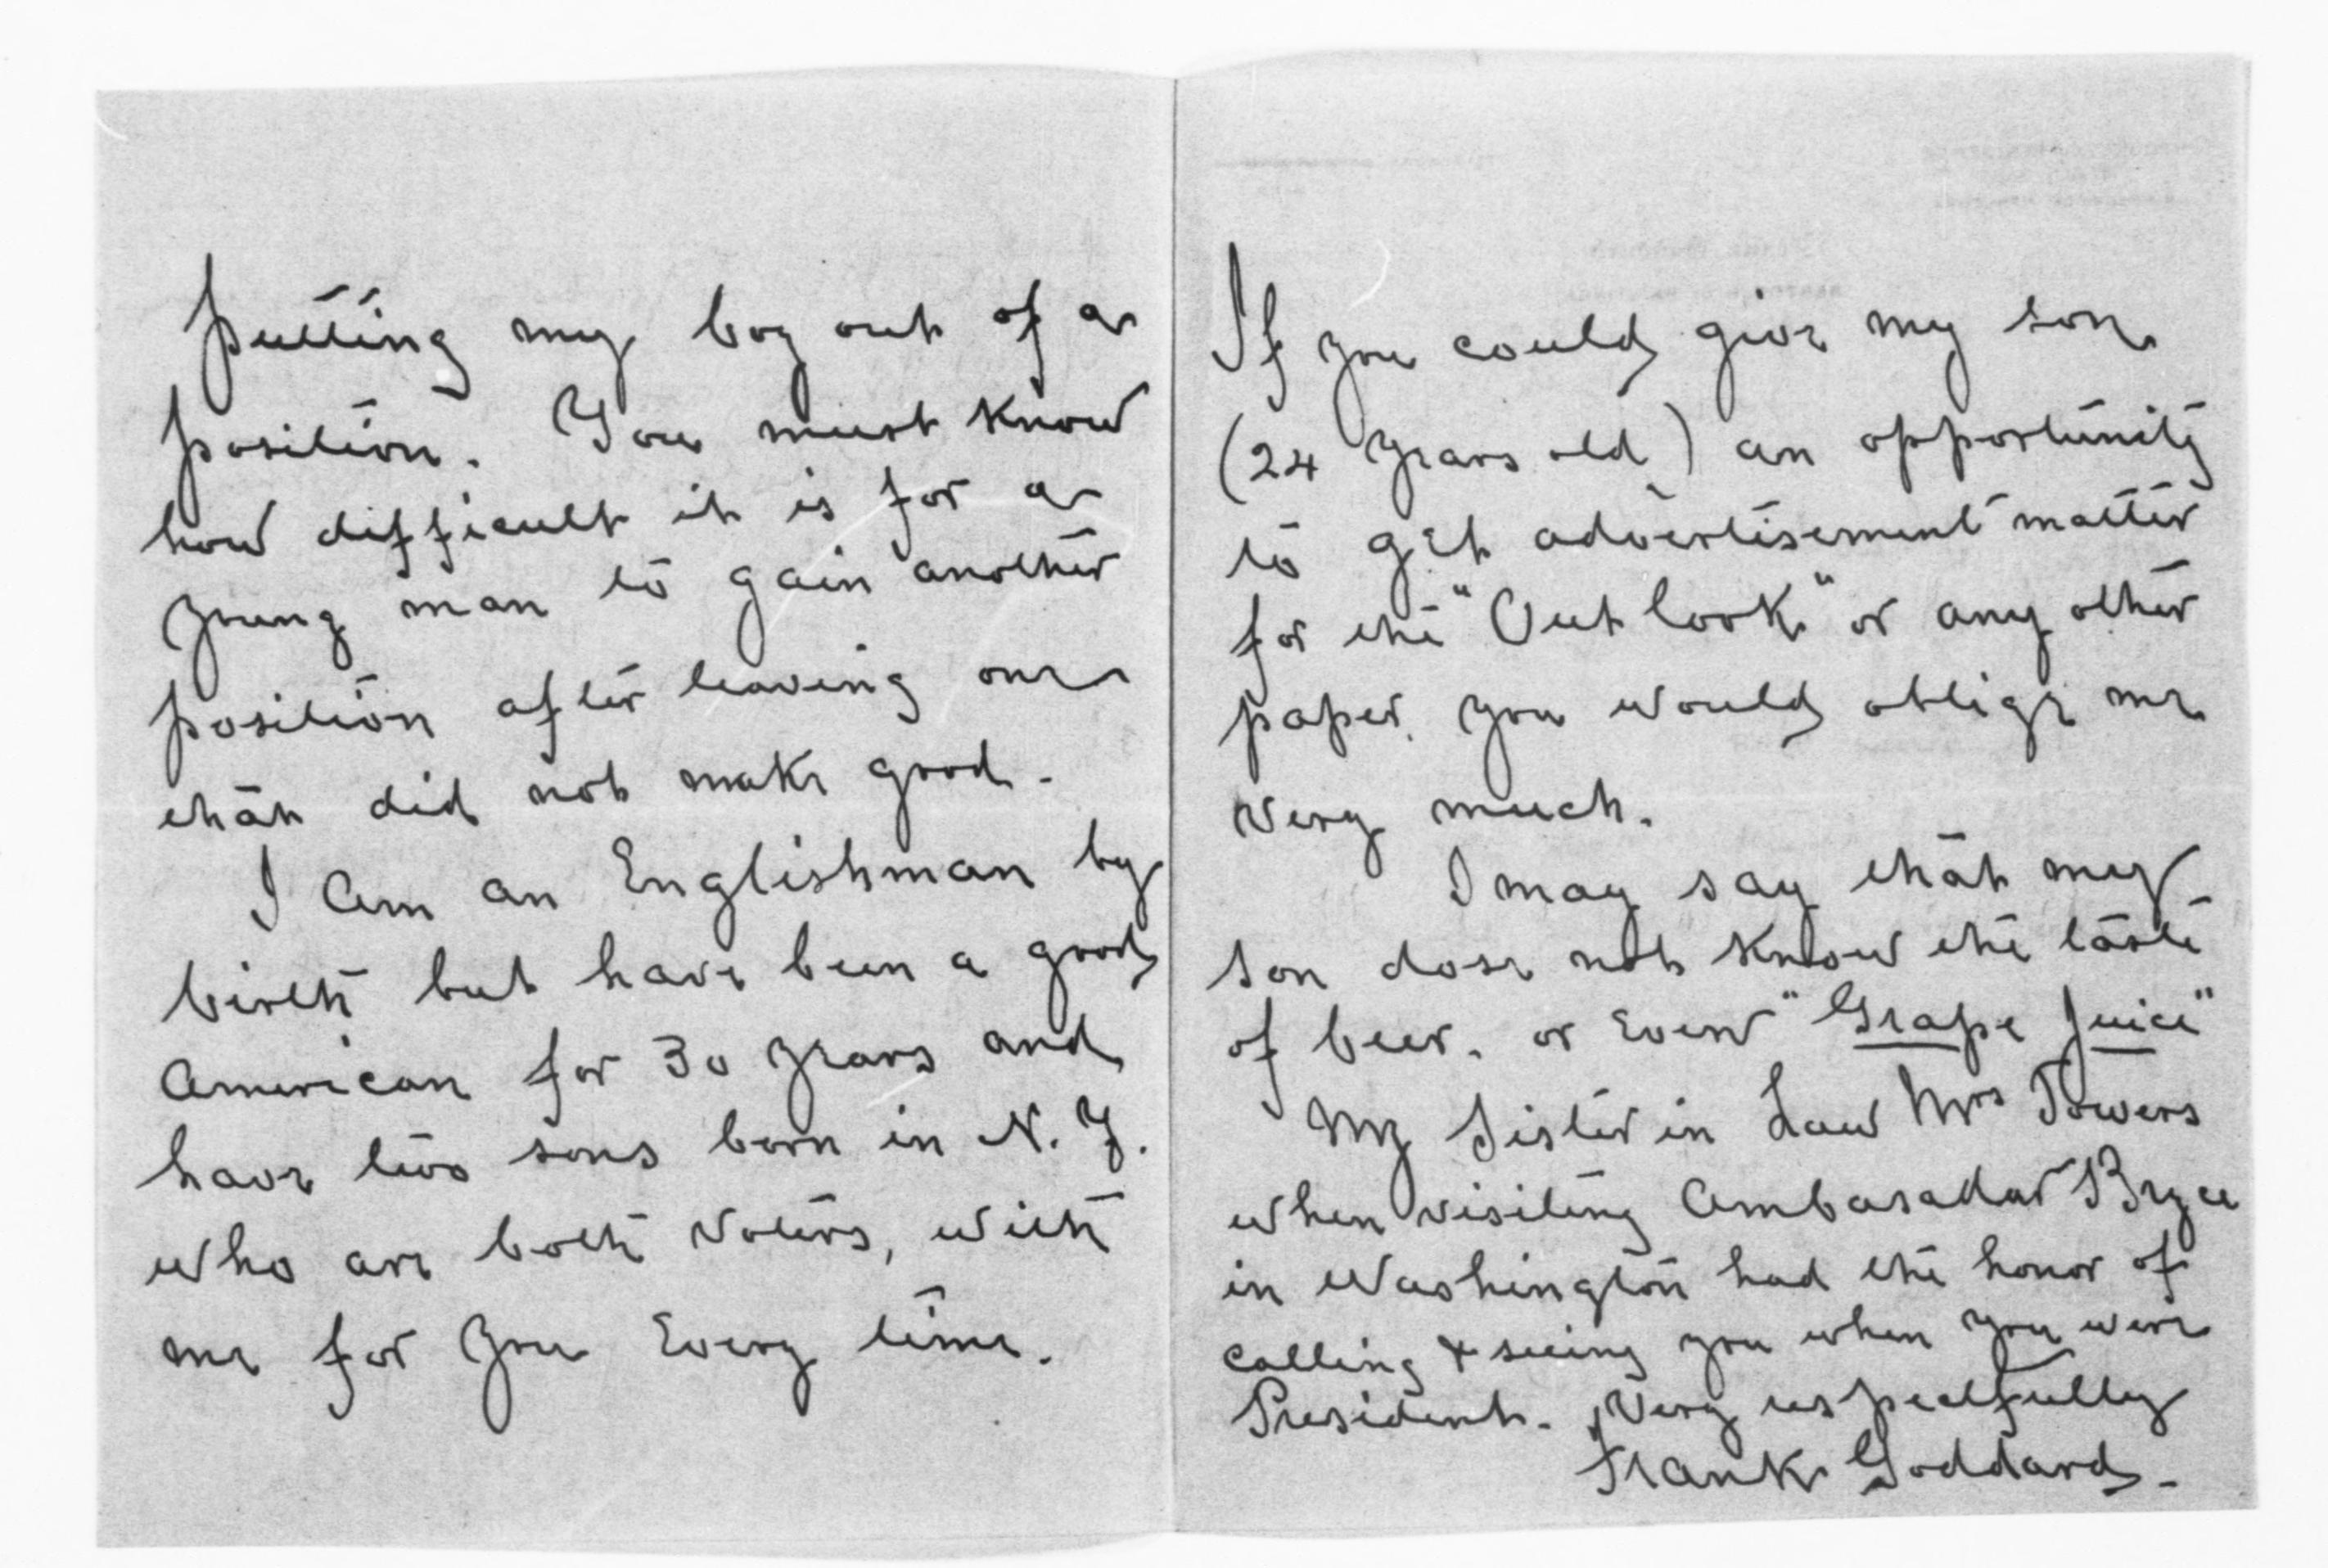 putting my boy out of a
position. You must know
how difficult it is for a
young man to gain another
position after leaving one
that did not make good.
I am an Englishman by
birth but have been a good
American for 30 years and
have two sons born in N.Y.
who are both voters, with
me for you Every time.
If you could give my son
(24 years old) an opportunity
to get advertisement matter
for the "Out look" or any other
paper, you would oblige me
very much.
I may say that my
son dose not know the taste
of beer. or Even "Grape Juice"
My Sister in Law Mrs Towers
when visiting Ambasador Bryce
in Washington had the honor of
calling & seeing you when you were
President. Very respectfully
Frank Goddard.